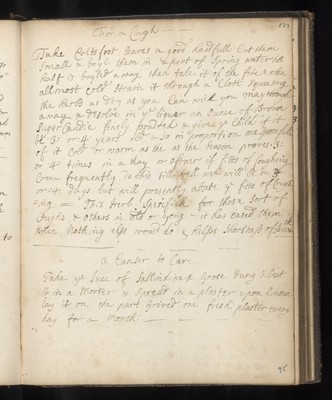 For a Cough
Take Coltsfoot leaves a good handfull Cut them
Small & boyl them in a pint of Spring water till
half is boyled away then take it of the fire & when
allmost cold Strain it through a Cloth Squeezing
the Herbs as dry as you Can and you may throw
away & desolve in ye liquor an ounce of Brown
Suger Candie finely poudred & give ye Child if it
be 3: or 4 years old — so in proportion one spoonfull
of it Cold or warm as the as the season proves: 3:
or 4 times in a day or oftner if fits of Coughing
Come frequently Do this till well wch will be in 3
or 4: days but will presently abate ye fits of Cough
=ing = This Herb Specifick for those Sort of
Coughs & others in old & yong — it has cured them
when Nothing else woud do & helps Shortness of Breath
a Canser to Cure
Take ye Juce of Sallendine & Goose Dung &: beat
it in a Morter & Spread in a plaster upon linnen
lay it on the part Grived one fresh plaster every
day for a Month